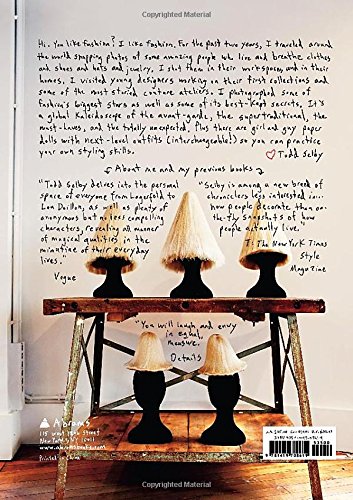 Copyrighted Material
Hi. You like fashion? I like fashion. For the past two years, I traveled around
the world snapping photos of some amazing people who live and breathe clothes
and shoes and hats and jewelry. I shot them in their workspaces and in their
homes. I visited young designers working on their first collections and
some of the most storied couture ateliers. I photographed some of
fashion's biggest stars as well as some of its best-kept secrets. It's
a global kaleidoscope of the avant-garde, the supertraditional, the
must-haves, and the totally unexpected. Plus there are girl and guy paper
dolls with next-level outfits (interchangeable!) so you can practice
your own styling skills.
♡ Todd Selby
About me and my previous books
"Todd Selby delves into the personal
space of everyone from Lagerfeld to
Lou Doillon, as well as plenty of
anonymous but no less compelling
characters, revealing all manner
of magical qualities in the
minutiae of their everyday
lives."
Vogue
"Selby is among a new breed of
chroniclers less interested in
how people decorate than on-
the-fly snapshots of how
people actually live."
T: The New York Times
Style
Magazine
"You will laugh and envy
in equal
measure.
Details
Abrams
115 West 18th Street
New York, NY 10011
www.abramsbooks.com
Printed in China
Copyrighted Material